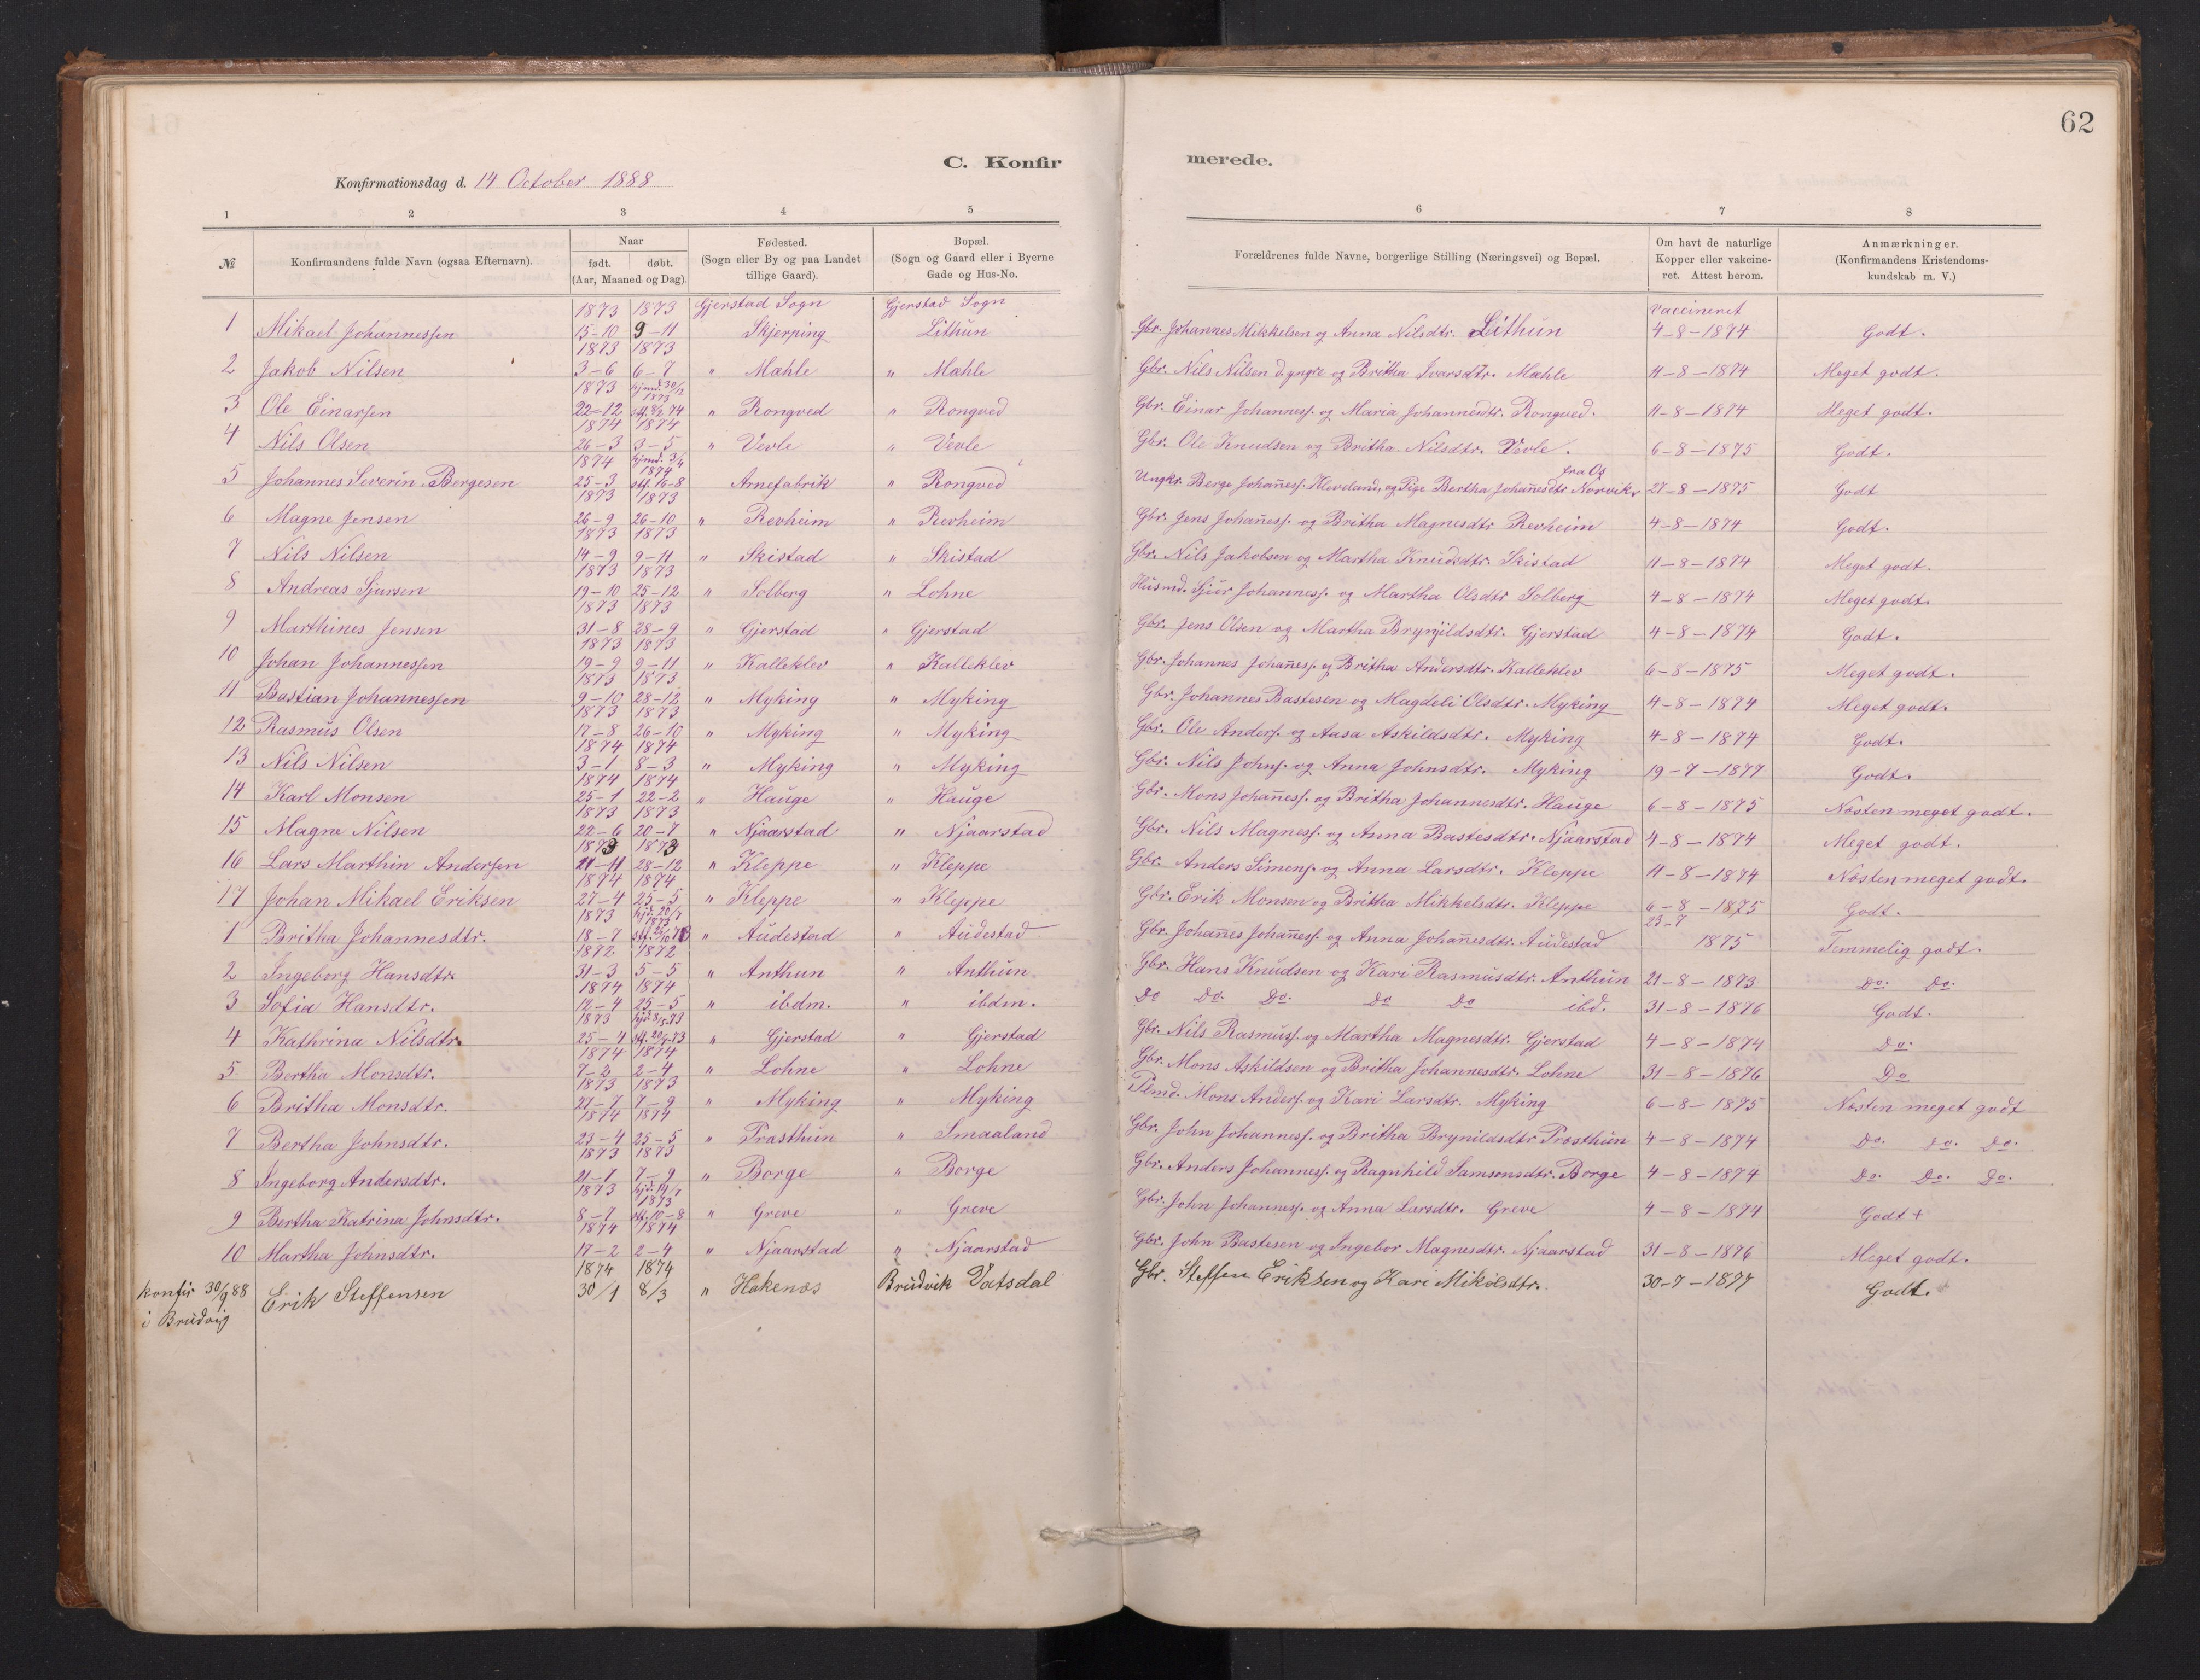 62
C. Konfir merede.
Konfirmationsdag d. 14 October 1888
1 2 3 4 5 6 7 8
№ Konfirmandens fulde Navn (ogsaa Efternavn). Naar født. døbt. (Aar, Maaned og Dag). Fødested. (Sogn eller By og paa Landet tillige Gaard). Bopæl. (Sogn og Gaard eller i Byerne Gade og Hus-No. Forældrenes fulde Navne, borgerlige Stilling (Næringsvei) og Bopæl. Om havt de naturlige Kopper eller vakcineret. Attest herom. Anmærkninger. (Konfirmandens Kristendomskundskab m. V.)
1873 1873 Gjerstad Sogn Gjerstad Sogn Vaccineret
1 Mikael Johannessen 15-10 9-11 Skjerping Lithun Gbr. Johannes Mikkelsen og Anna Nilsdtr. Lithun 4-8-1874 Godt.
1873 1873
2 Jakob Nilsen 3-6 6-7 " Mæhle " Mæhle Gbr. Nils Nilsen d. yngre og Britha Ivarsdtr. Mæhle 11-8-1874 Meget godt.
1873 hjmd. 30/12 1873
3 Ole Einarsen 22-12 stf. 8/2 74 " Rongved " Rongved Gbr. Einar Johannesj. og Maria Johannesdtr. Rongved. 11-8-1874 Meget godt.
1874 1874
4 Nils Olsen 26-3 3-5 " Vevle " Vevle Gbr. Ole Knudsen og Britha Nilsdtr. Vevle. 6-8-1875 Godt.
1874 hjmd. 3/4 1874
5 Johannes Severin Bergesen 25-3 stf. 16-8 Arnefabrik " Rongved Ungkr. Berge Johan̄esj. Hleveland, og Pige Bertha Johan̄esdtr Norvik fra Os 27-8-1875 Godt
1873 1873
6 Magne Jensen 26-9 26-10 " Revheim " Revheim Gbr. Jens Johan̄esj. og Britha Magnesdtr Revheim 4-8-1874 Godt.
1873 1873
7 Nils Nilsen 14-9 9-11 " Skistad " Skistad Gbr. Nils Jakobsen og Martha Knudsdtr. Skistad 11-8-1874 Meget godt.
1873 1873
8 Andreas Sjursen 19-10 25-12 " Solberg " Lohne Husmd. Sjur Johannesj. og Martha Olsdtr Solberg 4-8-1874 Meget godt.
1873 1873
9 Marthines Jensen 31-8 28-9 " Gjerstad " Gjerstad Gbr. Jens Olsen og Martha Brynjildsdtr. Gjerstad 4-8-1874 Godt.
1873 1873
10 Johan Johannessen 19-9 9-11 " Kalleklev " Kalleklev Gbr. Johannes Johan̄esj. og Britha Andersdtr. Kalleklev 6-8-1875 Meget godt.
1873 1873
11 Bastian Johannessen 9-10 28-12 " Myking " Myking Gbr. Johannes Bastesen og Magdeli Olsdtr. Myking 4-8-1874 Meget godt.
1873 1873
12 Rasmus Olsen 17-8 26-10 " Myking " Myking Gbr. Ole Andersj. og Aasa Askildsdtr. Myking 4-8-1874 Godt.
1874 1874
13 Nils Nilsen 3-1 8-3 " Myking " Myking Gbr. Nils Johnsj. og Anna Johnsdtr. Myking 19-7-1877 Godt.
1874 1874
14 Karl Monsen 25-1 22-2 " Hauge " Hauge Gbr. Mons Johan̄esj. og Britha Johannesdtr. Hauge 6-8-1875 Næsten meget godt.
1873 1873
15 Magne Nilsen 22-6 20-7 " Njaarstad " Njaarstad Gbr. Nils Magnesj. og Anna Bastesdtr. Njaarstad 4-8-1874 Meget godt.
1873 1873
16 Lars Marthin Andersen 21-11 28-12 " Kleppe " Kleppe Gbr. Anders Simensj. og Anna Larsdtr. Kleppe 11-8-1874 Næsten meget godt.
1874 1874
17 Johan Mikael Eriksen 27-4 25-5 " Kleppe " Kleppe Gbr. Erik Monsen og Britha Mikkelsdtr. Kleppe 6-8-1875 Godt.
1873 hjd. 20/7 1873
1 Britha Johannesdtr. 18-7 " Audestad " Audestad Gbr. Johan̄es Johan̄esj. og Anna Johan̄esdtr. Audestad 23-7 1875 Temmelig godt.
1872 1872
2 Ingeborg Hansdtr. 31-3 5-5 " Anthun " Anthun. Gbr. Hans Knudsen og Kari Rasmusdtr. Anthun 21-8-1873 Do. Do.
1874 1874
3 Sofia Hansdtr. 12-4 25-5 " ibdm. " ibdm. Do Do. Do. Do Do ibd. 31-8-1876 Godt.
1873 hjd. 8/5-73
4 Kathrina Nilsdtr. 25-4 " Gjerstad " Gjerstad Gbr. Nils Rasmusj. og Martha Magnesdtr. Gjerstad 4-8-1874 Do.
1874 1874
5 Bertha Monsdtr. 7-2 2-4 " Lohne " Lohne Gbr. Mons Askildsen og Britha Johannesdtr. Lohne 31-8-1876 Do
1873 1873
6 Britha Monsdtr. 27-7 7-9 " Myking " Myking Plmd. Mons Andersj. og Kari Larsdtr. Myking 6-8-1875 Næsten meget godt
1874 1874
7 Bertha Johnsdtr. 23-4 25-5 " Træsthun " Smaaland Gbr. John Johannesj. og Britha Brynildsdtr Træsthun 4-8-1874 Do. Do. Do.
1873 1873
8 Ingeborg Andersdtr. 21-7 7-9 " Borge " Borge Gbr. Anders Johannesj. og Ragnhild Samsonsdtr. Borge 4-8-1874 Do. Do. Do.
1873 hjd. 14/7 1873
9 Bertha Katrina Johnsdtr. 8-7 stf. 10-8 " Greve " Greve Gbr. John Johannesj. og Anna Larsdtr. Greve 4-8-1874 Godt +
1874 1874
10 Martha Johnsdtr. 17-2 2-4 " Njaarstad " Njaarstad Gbr. John Bastesen og Ingebor Magnesdtr. Njaarstad 31-8-1876 Meget godt.
1874 1874
konfir 30/9 88 i Brudvig Erik Steffensen 30/1 8/3 " Hokenæs Brudvik Vatsdal Gbr. Steffen Eriksen og Kari Mikolsdtr. 30-7-1877 Godt.